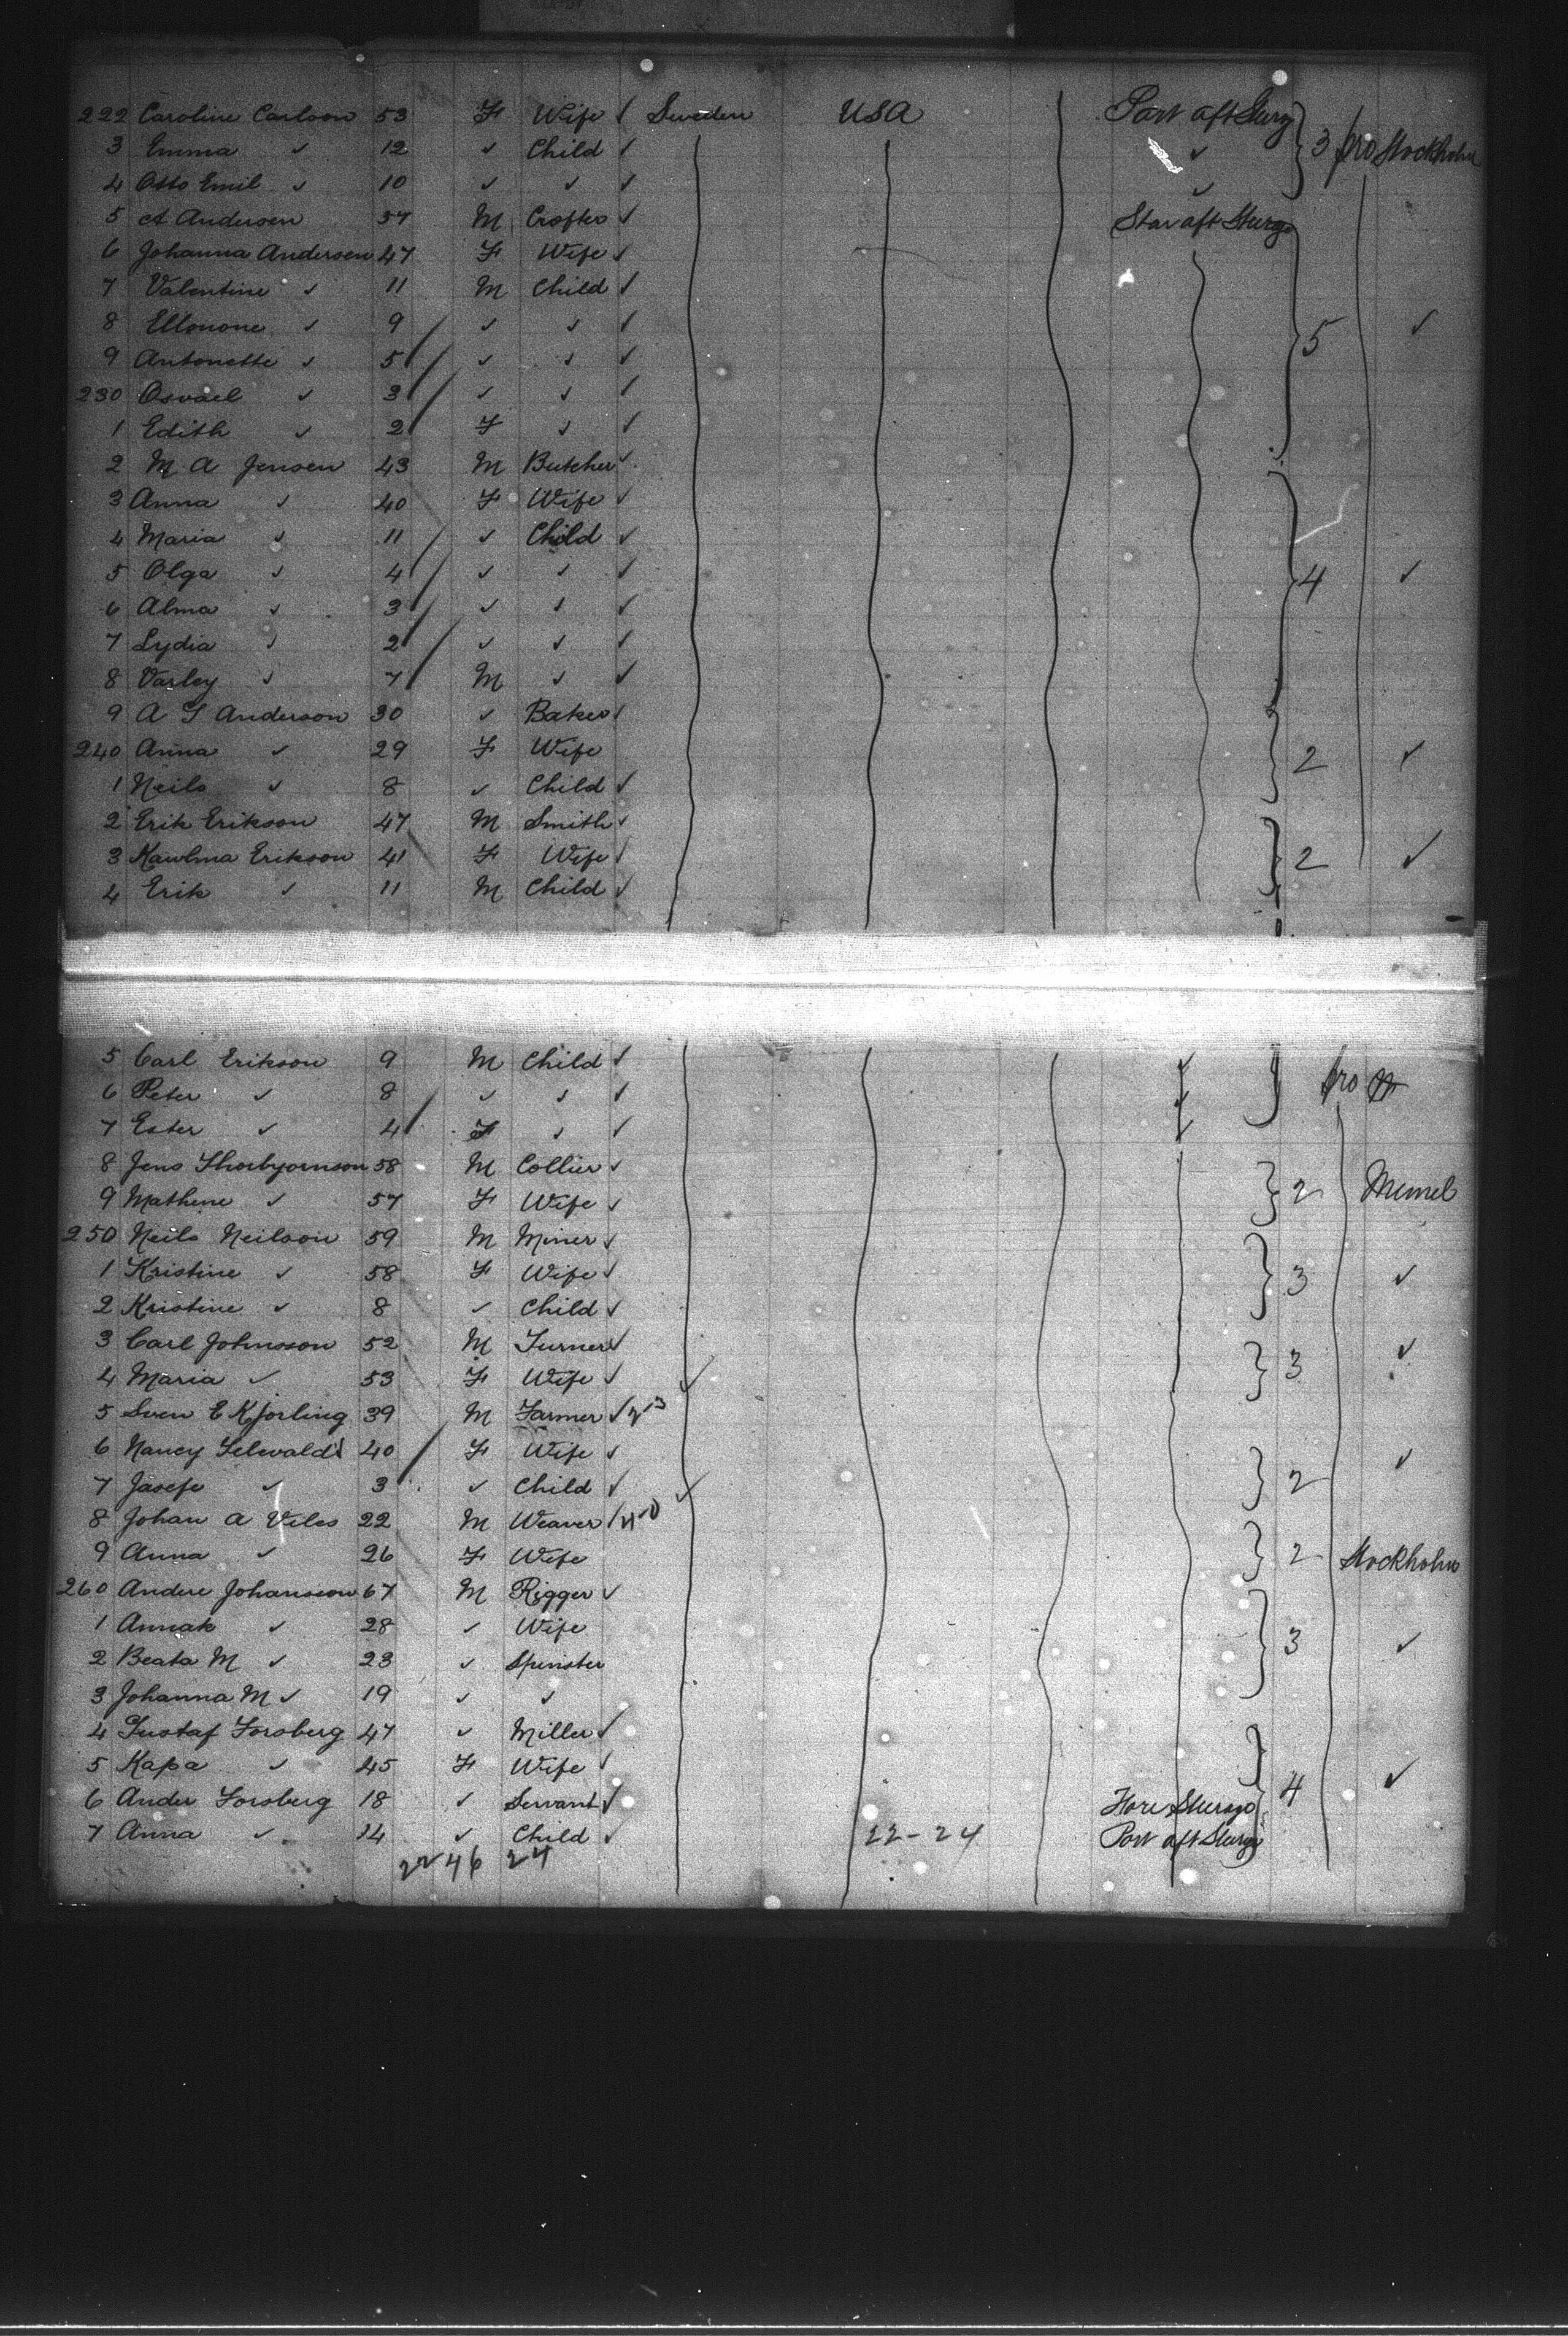 222 Caroline Carlson 53 F Wife ✓ Sweden USA Port aft Sturg 3 pro Stockholm
3 Emma ✓ 12 ✓ Child ✓ ✓
4 Otto Emil ✓ 10 ✓ ✓ ✓ ✓
5 A Andersen 57 M Crofter ✓ Star aft Sturge
6 Johanna Andersen 47 F Wife ✓
7 Valentine ✓ 11 M Child ✓
8 Ellonone ✓ 9 ✓ ✓ ✓ 5 ✓
9 Antonette ✓ 5 ✓ ✓ ✓
230 Osvael ✓ 3 ✓ ✓ ✓
1 Edith ✓ 2 F ✓ ✓
2 M A Jensen 43 M Butcher ✓
3 Anna ✓ 40 F Wife ✓
4 Maria ✓ 11 ✓ Child ✓
5 Olga ✓ 4 ✓ ✓ ✓ 4 ✓
6 Alma ✓ 3 ✓ ✓ ✓
7 Lydia ✓ 2 ✓ ✓ ✓
8 Varley ✓ 7 M ✓ ✓
9 A S Anderson 30 ✓ Baker ✓
240 Anna ✓ 29 F Wife 2 ✓
1 Neils ✓ 8 ✓ Child ✓
2 Erik Erikson 47 M Smith ✓
3 Kawlma Erikson 41 F Wife ✓ 2 ✓
4 Erik ✓ 11 M Child ✓
5 Carl Erikson 9 M Child ✓ ✓ pro
6 Peter ✓ 8 ✓ ✓ ✓ ✓
7 Ester ✓ 4 F ✓ ✓ ✓
8 Jens Thorbjornson 58 M Collier ✓
9 Mathine ✓ 57 F Wife ✓ 2 Memel
250 Neils Neilson 59 M Miner ✓
1 Kristine ✓ 58 F Wife ✓ 3 ✓
2 Kristine ✓ 8 ✓ Child ✓
3 Carl Johnsson 52 M Turner ✓ 3 ✓
4 Maria ✓ 53 F Wife ✓ ✓
5 Sven E Kjorling 39 M Farmer ✓ 2 3
6 Nancy 40 F Wife ✓ ✓
7 Josefe ✓ 3 ✓ Child ✓ ✓ 2
8 Johan A Veles 22 M Weaver
9 Anna ✓ 26 F Wife 2 Stockholm
260 Andere Johansson 67 M Rigger ✓
1 Annak ✓ 28 ✓ Wife 3 ✓
2 Beata M ✓ 23 ✓ Spinster
3 Johanna M ✓ 19 ✓ ✓
4 Gustaf Forsberg 47 ✓ Miller ✓
5 Kapa ✓ 45 F Wife ✓ ✓
6 Ander Forsberg 18 ✓ Servant ✓ Fore Sturge 4
7 Anna ✓ 14 ✓ Child ✓ 22-24 Port aft Sturge
22 46 24